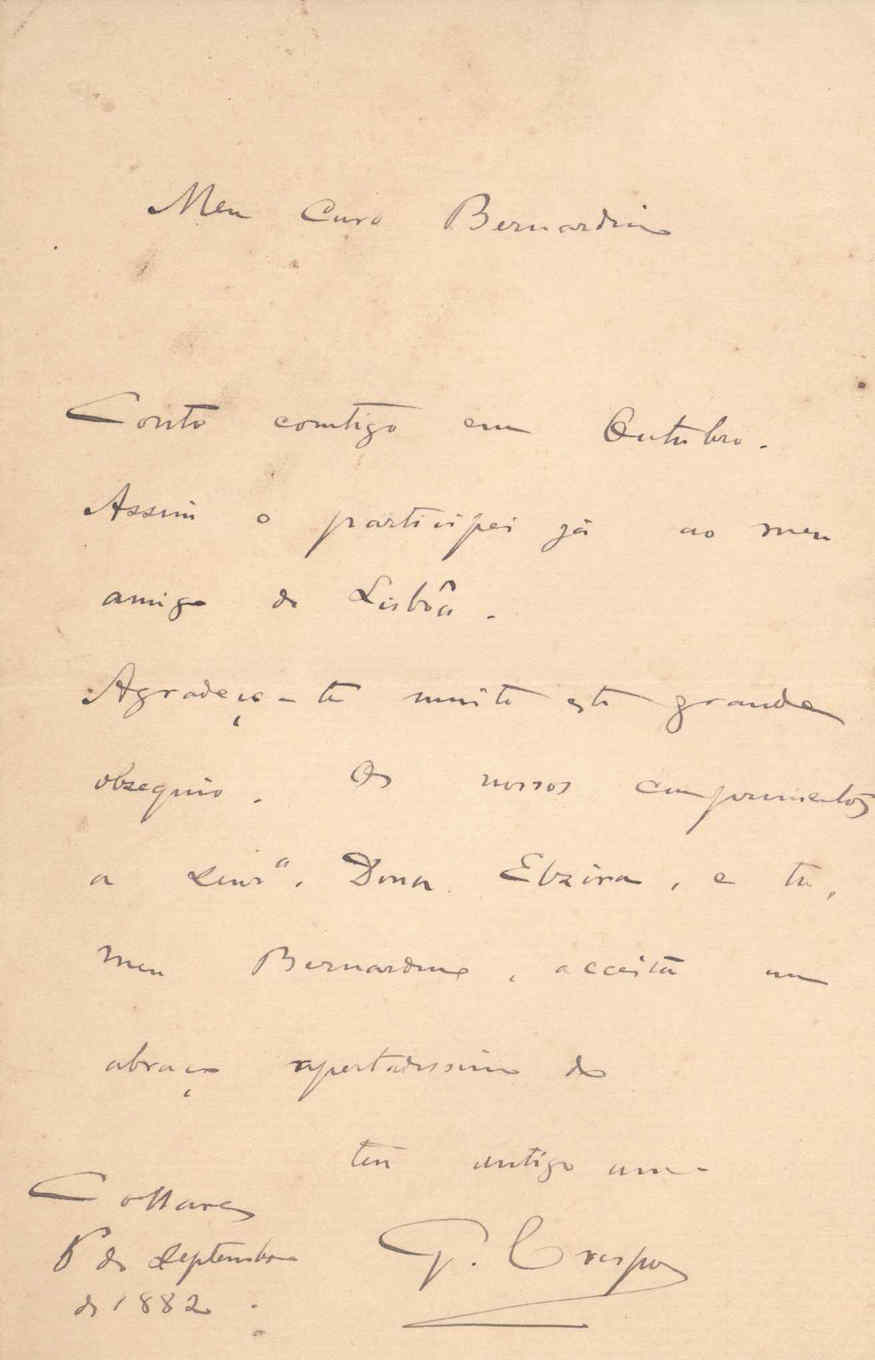 Meu Caro Bernardino
Conto comtigo em Outubro.
Assim o participei já ao meu
amigo de Lisbôa.
Agradeço-te muito este grande
obsequio. Os nossos cumprimentos
a Senrª. Dona Elzira, e tu,
meu Bernardino, acceita um
abraço apertadissimo do
teu antigo am-
G. Crespo
Collares
de Septembro
de 1882.